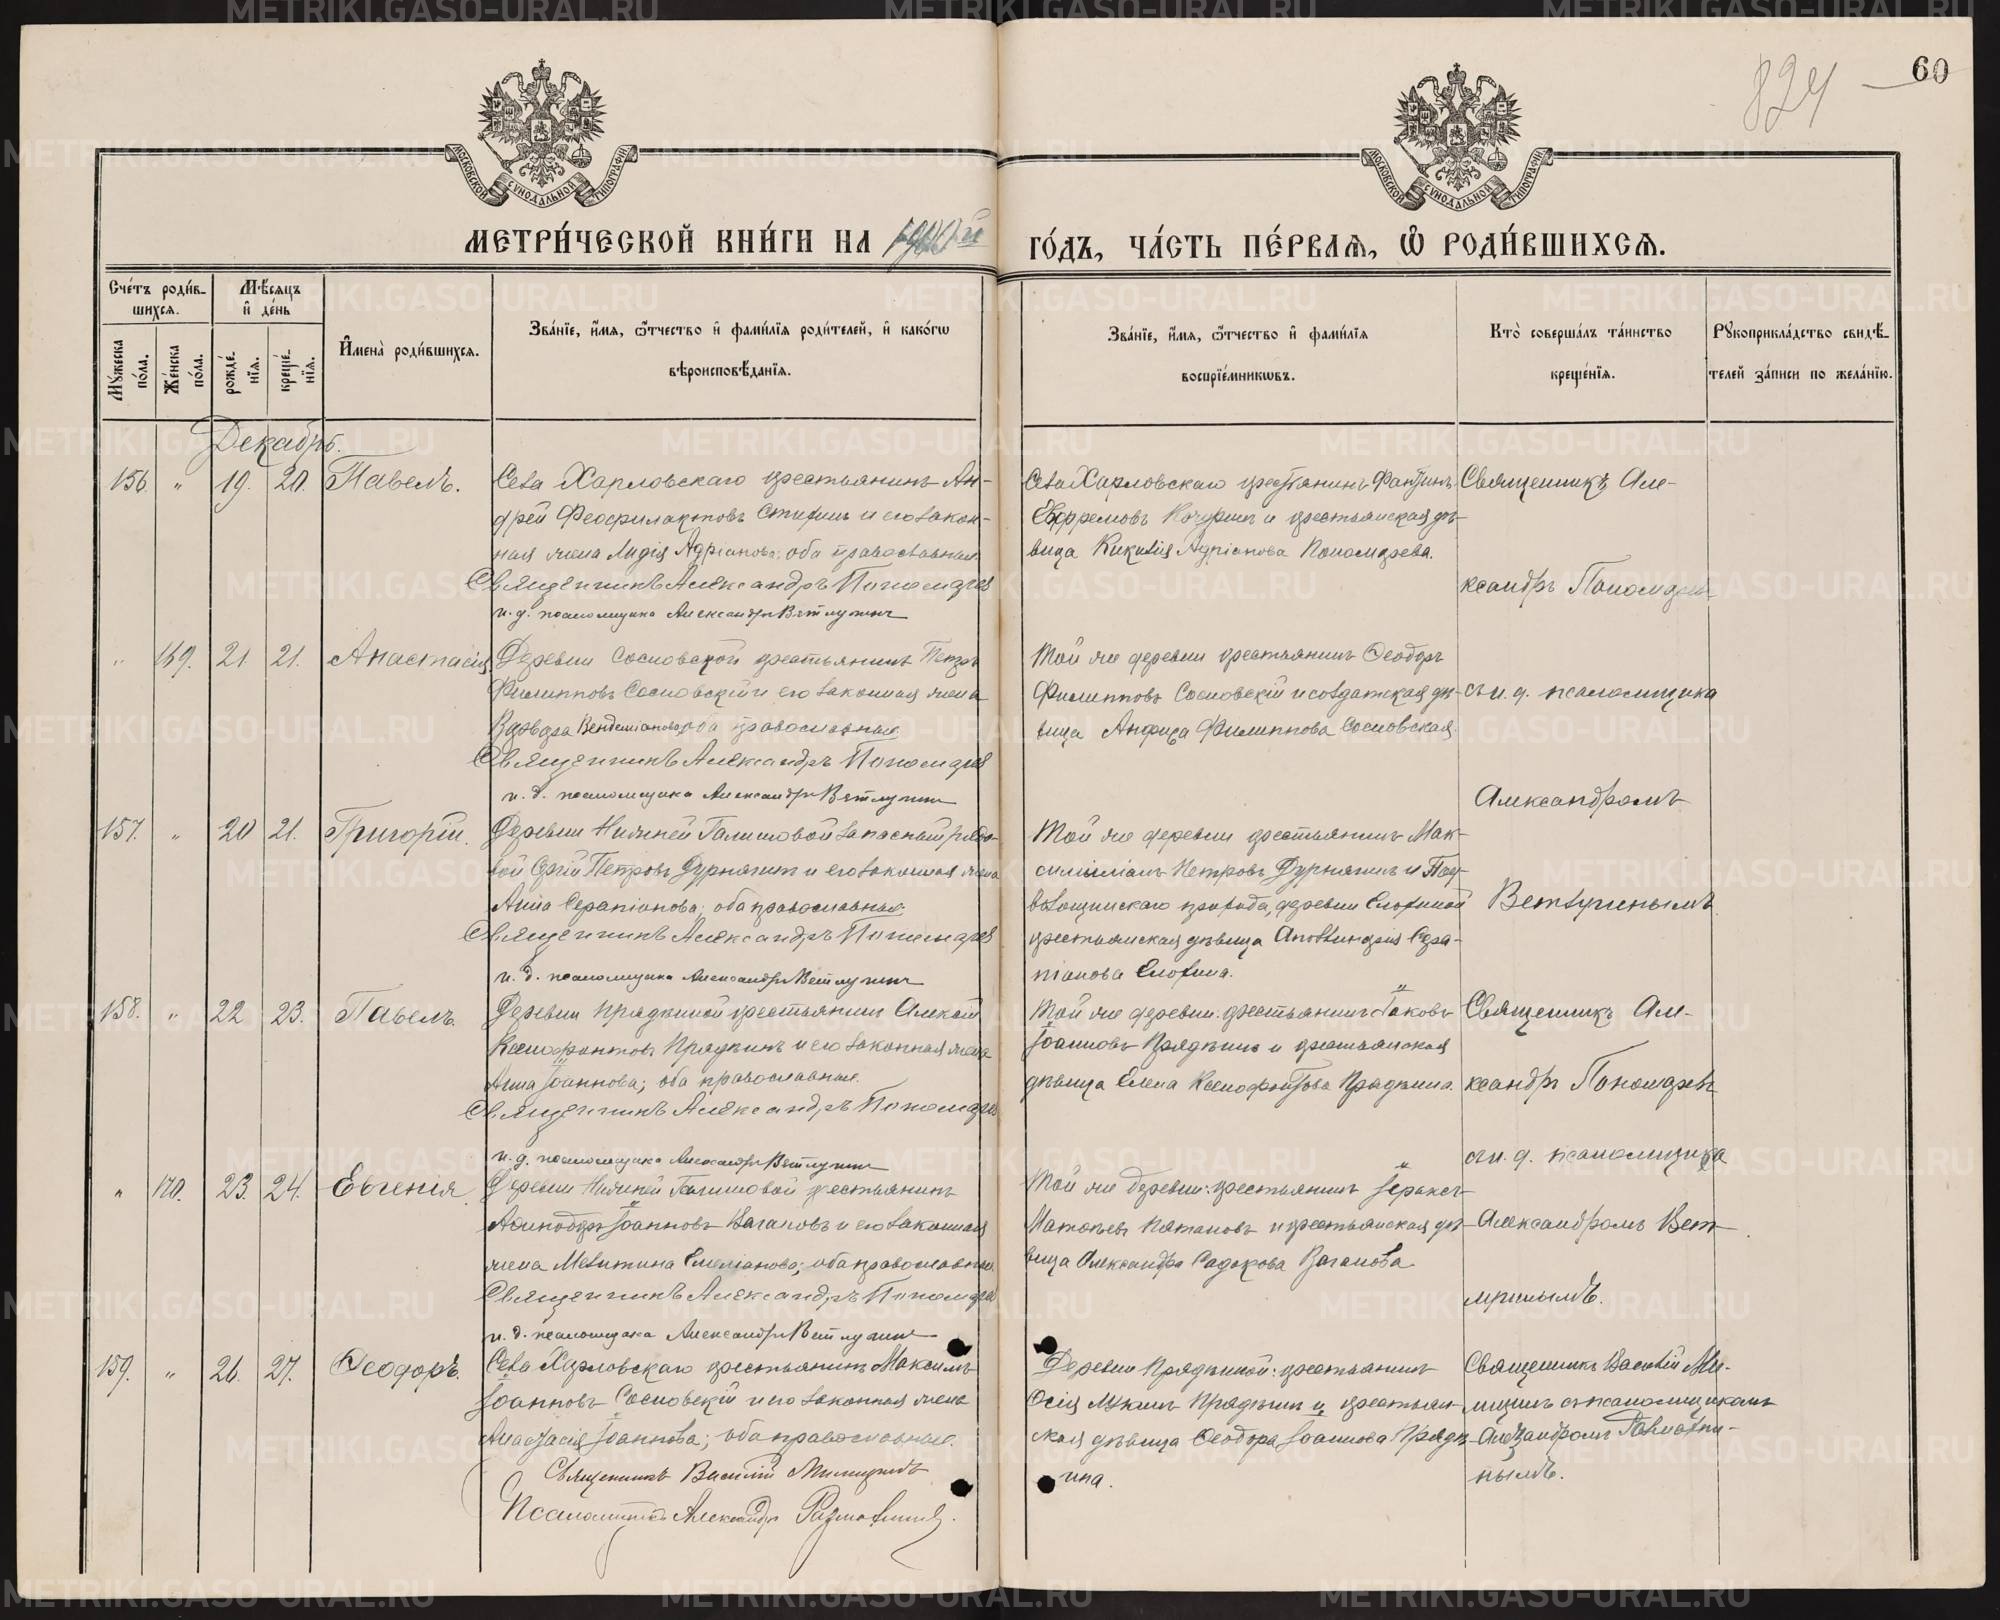 824
60
МОСКОВСКОЙ СѴНОДАЛЬНОЙ ТИПОГРАФІИ
МОСКОВСКОЙ СѴНОДАЛЬНОЙ ТИПОГРАФІИ
МЕТРИ́ЧЕСКОЙ КНИ́ГИ НА 1900й
ГО́ДЪ, ЧА́СТЬ ПЕ́РВАѦ, Ѡ҆ РОДИ́ВШИХСѦ.
Сче́тъ роди́в-
шихсѧ.
Мѣ́сѧцъ
и҆ де́нь
Мꙋ́жеска
по́ла.
Же́нска
по́ла.
рожде́-
нїѧ.
креще́-
нїѧ.
И҆мена̀ роди́вшихсѧ.
Зва́нїе, и҆́мѧ, ѻ҆́тчество и҆ фами́лїѧ роди́телей, и҆ како́гѡ
вѣроисповѣ́данїѧ.
Зва́нїе, и҆́мѧ, ѻ҆́тчество и҆ фами́лїѧ
воспрїе́мникѡвъ.
Кто̀ соверша́лъ та́инство
креще́нїѧ.
Рꙋкоприкла́дство свидѣ́-
телей за́писи по жела́нїю.
Декабрь.
156. " 19. 20. Павелъ.
Села Харловскаго крестьянинъ Ан-
дрей Феофилактовъ и его закон-
ная жена Лидія Адріанова; оба православные
Священникъ Александръ Пономарев
и. д. псаломщика Александръ Ветлугинъ
Села Харловскаго крестьянинъ
Ефремовъ и крестьянская дѣ-
вица Адріанова Пономарева.
Священникъ Але-
ксандръ Пономаревъ
" 169. 21 21. Анастасія
Деревни Сосновской крестьянинъ Петръ
Филипповъ Сосновскій и его законная жена
Варвара оба православные
Священникъ Александръ Пономарев
и. д. псаломщика Александръ Ветлугинъ
Той же деревни крестьянинъ Ѳеодоръ
Филипповъ Сосновскій и солдатская дѣ-
вица Анфиса Филиппова Сосновская.
съ и. д. псаломщика
Александромъ
157. " 20 21. Григорій.
Деревни Нижней Галишовой запасный рядо-
вой Сергій Петровъ Дурнягинъ и его законная жена
Анна Серапіонова; оба православные
Священникъ Александръ Пономарев
и. д. псаломщика Александръ Ветлугинъ
Той же деревни крестьянинъ Мак-
симиліанъ Петровъ Дурнягинъ и
прихода, деревни
крестьянская дѣвица Аполлинарія Сера-
піонова
Ветлугинымъ.
158. " 22 23. Павелъ.
Деревни Прядкиной крестьянинъ Алексѣй
Ксенофонтовъ Прядкинъ и его законная жена
Анна Іоаннова; оба православные.
Священникъ Александръ Пономарев
и. д. псаломщика Александръ Ветлугинъ
Той же деревни: крестьянинъ Іаковъ
Іоанновъ Прядкинъ и крестьянская
дѣвица Елена Ксенофонтова Прядкина.
Священникъ Але-
ксандръ Пономаревъ
съ и. д. псаломщика
" 170. 23. 24. Евгенія
Деревни Нижней Галишовой крестьянинъ
Іоанновъ Вагановъ и его законная
жена Мелитина Емеліанова; оба православные
Священникъ Александръ Пономарев
и. д. псаломщика Александръ Ветлугинъ
Той же деревни: крестьянинъ Іераксъ
и крестьянская дѣ-
вица Александра Садокова Ваганова.
Александромъ Вет-
лугинымъ.
159. " 26. 27. Ѳеодоръ.
Села Харловскаго крестьянинъ Максимъ
Іоанновъ Сосновскій и его законная жена
Анастасія Іоаннова; оба православные.
Священникъ Василій
Псаломщикъ Александръ
Деревни Прядкиной: крестьянинъ
Осія Лукинъ Прядкинъ и крестьян-
ская дѣвица Ѳеодора Іоаннова Прядк-
ина.
Священникъ Василій
съ псаломщикомъ
Александромъ
нымъ.
METRIKI.GASO-URAL.RU